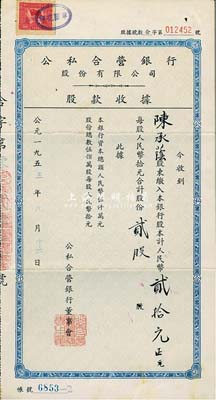 股款收據 介字第 012452 號
公私合營銀行
股份有限公司
股款收據
今收到
陳承蔭股東繳入本銀行股本計人民幣貳拾元正
每股人民幣拾元合計股份貳股
此據
本銀行資本總額人民幣伍仟萬元
股份總數伍佰萬股每股人民幣拾元
公私合營銀行董事會
公元一九五
帳號 6853-2